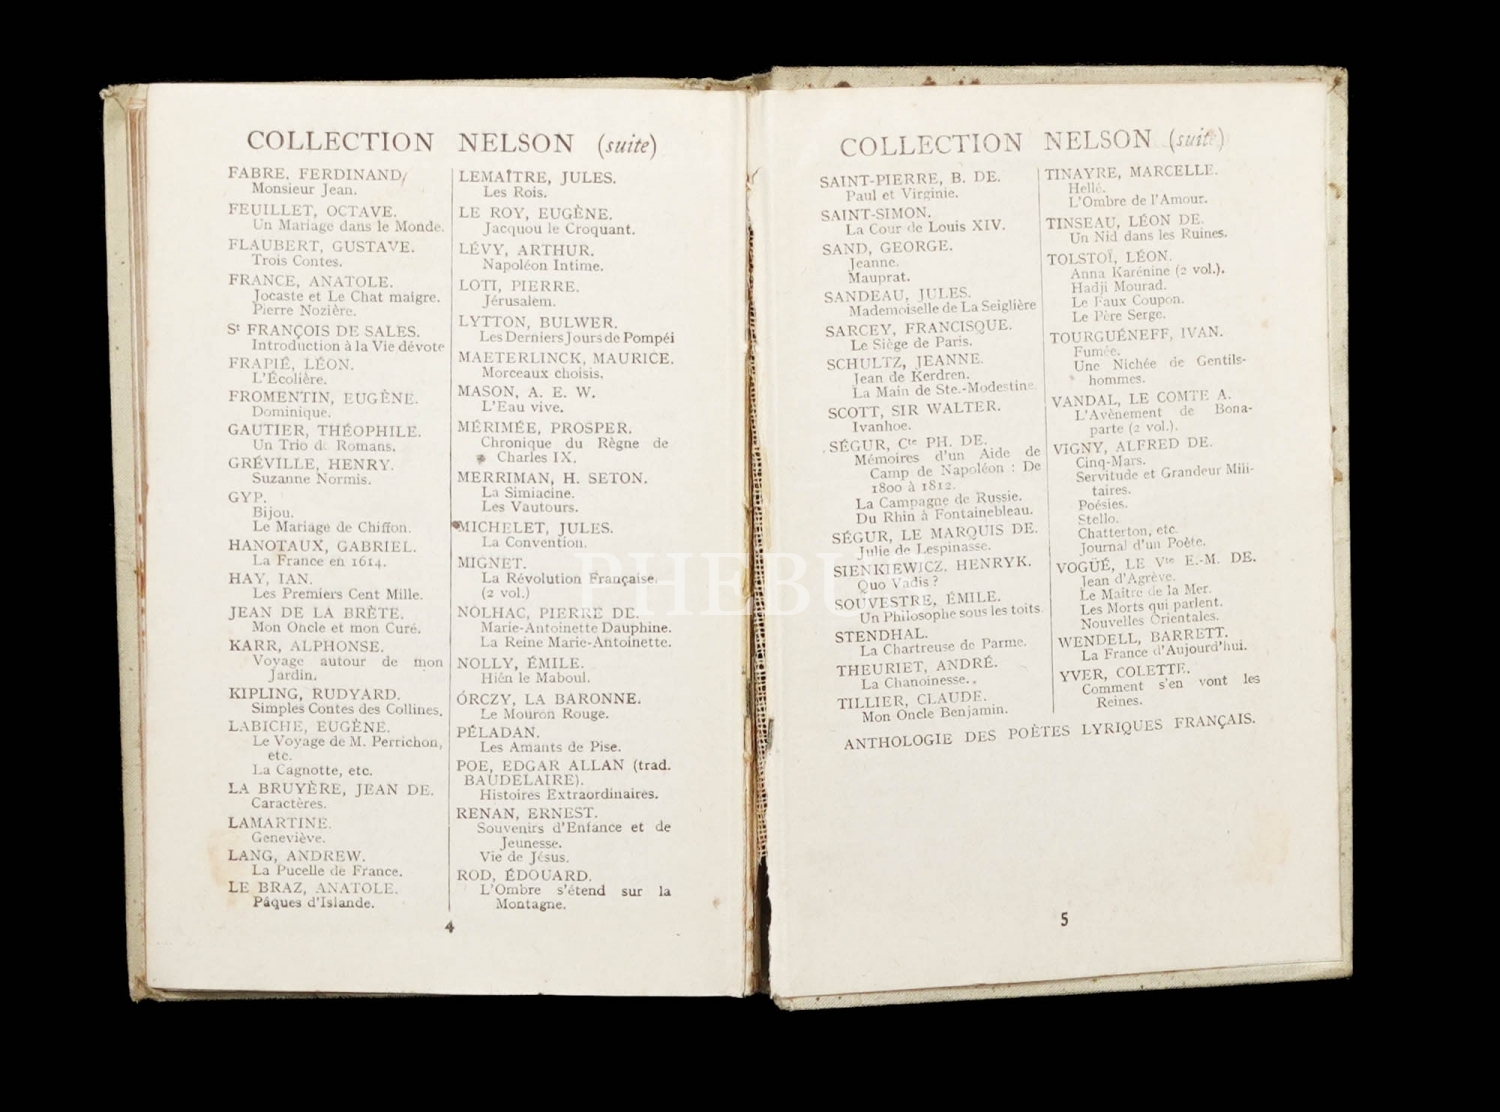 COLLECTION NELSON (suite)
FABRE, FERDINAND,
Monsieur Jean.
FEUILLET, OCTAVE.
Un Mariage dans le Monde.
FLAUBERT, GUSTAVE.
Trois Contes.
FRANCE, ANATOLE.
Jocaste et Le Chat maigre.
Pierre Nozière.
St FRANÇOIS DE SALES.
Introduction à la Vie dévote
FRAPIÉ, LÉON.
L'Écolière.
FROMENTIN, EUGÈNE.
Dominique.
GAUTIER, THÉOPHILE.
Un Trio de Romans.
GRÉVILLE, HENRY.
Suzanne Normis.
GYP.
Bijou.
Le Mariage de Chiffon.
HANOTAUX, GABRIEL.
La France en 1614.
HAY, IAN.
Les Premiers Cent Mille.
JEAN DE LA BRÈTE.
Mon Oncle et mon Curé.
KARR, ALPHONSE.
Voyage autour de mon
Jardin.
KIPLING, RUDYARD.
Simples Contes des Collines.
LABICHE, EUGÈNE.
Le Voyage de M. Perrichon,
etc.
La Cagnotte, etc.
LA BRUYÈRE, JEAN DE.
Caractères.
LAMARTINE.
Geneviève.
LANG, ANDREW.
La Pucelle de France.
LE BRAZ, ANATOLE.
Pâques d'Islande.
LEMAÎTRE, JULES.
Les Rois.
LE ROY, EUGÈNE.
Jacquou le Croquant.
LÉVY, ARTHUR.
Napoléon Intime.
LOTI, PIERRE.
Jérusalem.
LYTTON, BULWER.
Les Derniers Jours de Pompéi
MAETERLINCK, MAURICE.
Morceaux choisis.
MASON, A. E. W.
L'Eau vive.
MÉRIMÉE, PROSPER.
Chronique du Règne de
Charles IX.
MERRIMAN, H. SETON.
La Simiacine.
Les Vautours.
MICHELET, JULES.
La Convention.
MIGNET.
La Révolution Française.
(2 vol.)
NOLHAC, PIERRE DE.
Marie-Antoinette Dauphine.
La Reine Marie-Antoinette.
NOLLY, ÉMILE.
Hién le Maboul.
ÓRCZY, LA BARONNE.
Le Mouron Rouge.
PÉLADAN.
Les Amants de Pise.
POE, EDGAR ALLAN (trad.
BAUDELAIRE).
Histoires Extraordinaires.
RENAN, ERNEST.
Souvenirs d'Enfance et de
Jeunesse.
Vie de Jésus.
ROD, ÉDOUARD.
L'Ombre s'étend sur la
Montagne.
4
COLLECTION NELSON (suite)
SAINT-PIERRE, B. DE.
Paul et Virginie.
SAINT-SIMON.
La Cour de Louis XIV.
SAND, GEORGE.
Jeanne.
Mauprat.
SANDEAU, JULES.
Mademoiselle de La Seiglière
SARCEY, FRANCISQUE.
Le Siège de Paris.
SCHULTZ, JEANNE.
Jean de Kerdren.
La Main de Ste.-Modestine.
SCOTT, SIR WALTER.
Ivanhoe.
SÉGUR, Cte PH. DE.
Mémoires d'un Aide de
Camp de Napoléon : De
1800 à 1812.
La Campagne de Russie.
Du Rhin à Fontainebleau.
SÉGUR, LE MARQUIS DE.
Julie de Lespinasse.
SIENKIEWICZ, HENRYK.
Quo Vadis ?
SOUVESTRE, ÉMILE.
Un Philosophe sous les toits.
STENDHAL.
La Chartreuse de Parme.
THEURIET, ANDRÉ.
La Chanoinesse.
TILLIER, CLAUDE.
Mon Oncle Benjamin.
TINAYRE, MARCELLE.
Hellé.
L'Ombre de l'Amour.
TINSEAU, LÉON DE.
Un Nid dans les Ruines.
TOLSTOÏ, LÉON.
Anna Karénine (2 vol.).
Hadji Mourad.
Le Faux Coupon.
Le Père Serge.
TOURGUÉNEFF, IVAN.
Fumée.
Une Nichée de Gentils-
hommes.
VANDAL, LE COMTE A.
L'Avènement de Bona-
parte (2 vol.).
VIGNY, ALFRED DE.
Cinq-Mars.
Servitude et Grandeur Mili-
taires.
Poésies.
Stello.
Chatterton, etc.
Journal d'un Poète.
VOGÜÉ, LE Vte E.-M. DE.
Jean d'Agrève.
Le Maître de la Mer.
Les Morts qui parlent.
Nouvelles Orientales.
WENDELL, BARRETT.
La France d'Aujourd'hui.
YVER, COLETTE.
Comment s'en vont les
Reines.
ANTHOLOGIE DES POÈTES LYRIQUES FRANÇAIS.
5
PHEBU